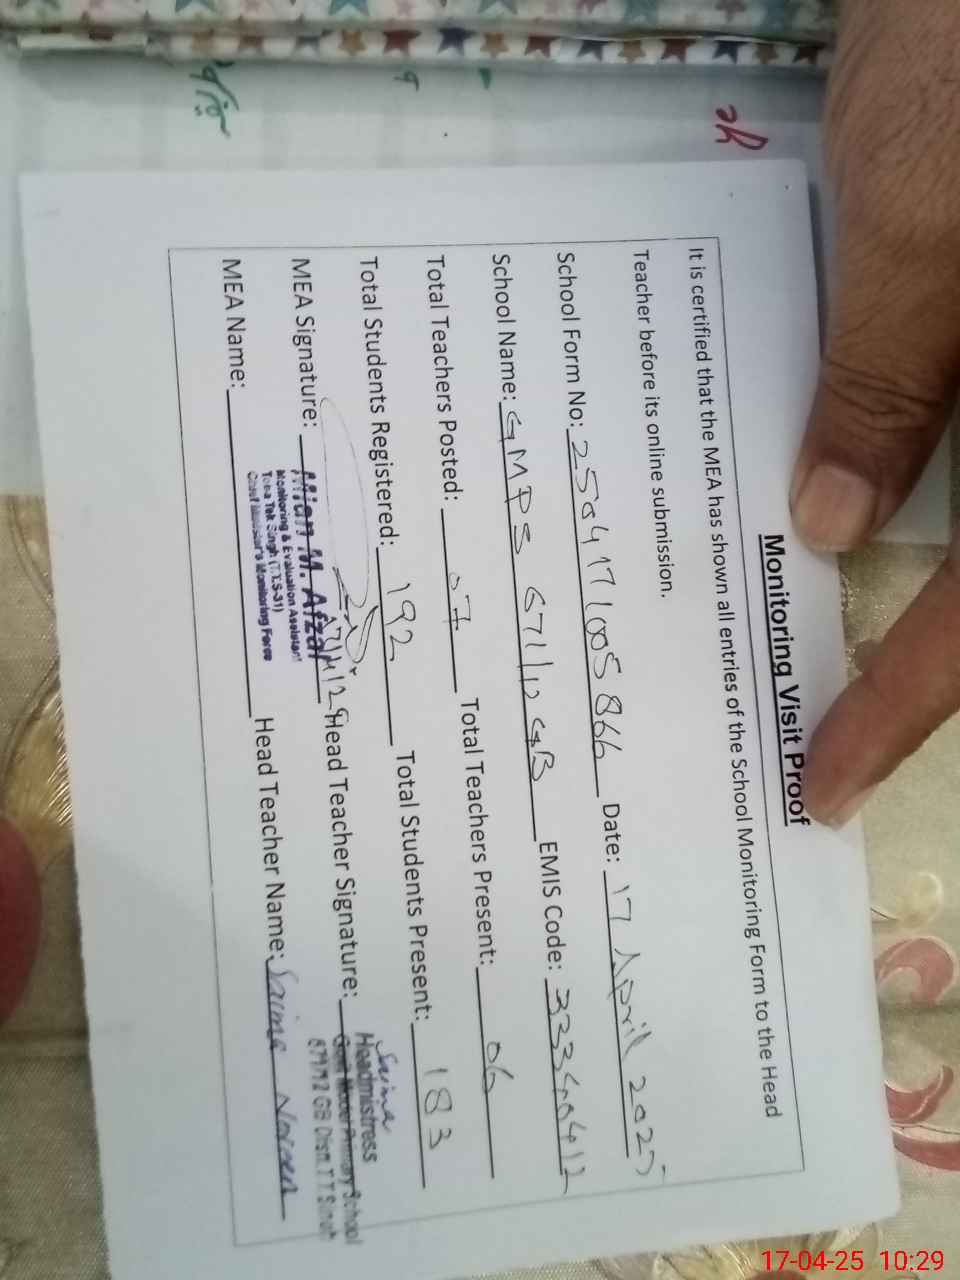 Monitoring Visit Proof
It is certified that the MEA has shown all entries of the School Monitoring Form to the Head
Teacher before its online submission.
School Form No: 2504171005866 Date: 17 April 2025
School Name: GMPS 671/12 GB EMIS Code: 33340412
Total Teachers Posted: 07 Total Teachers Present: 06
Total Students Registered: 192 Total Students Present: 183
MEA Signature: Head Teacher Signature: Saima
Headmistress
Govt. Model Primary School
671/12 GB Distt. T T Singh
Mian M. Afzal
Monitoring & Evaluation Assistant
Toba Tek Singh (T.T.S-31)
Chief Minister's Monitoring Force
MEA Name: Head Teacher Name: Saima Noreen
17-04-25 10:29